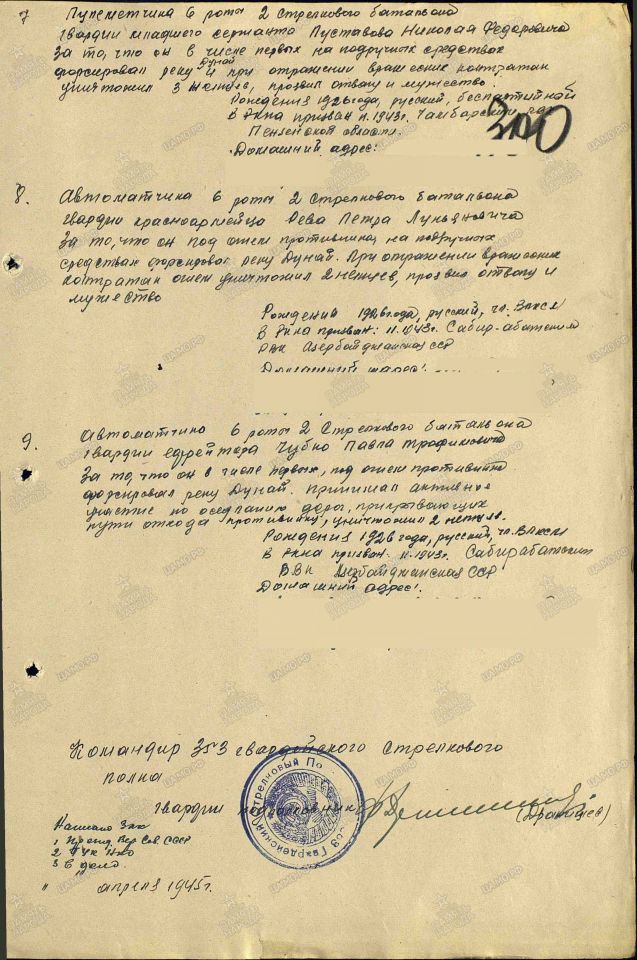 7 Пулеметчика 6 роты 2 стрелкового батальона
гвардии младшего сержанта Пуставова Николая Федоровича
За то, что он в числе первых на подручных средствах
форсировал реку Дунай и при отражении вражеских контратак
уничтожил 3 немцев, проявил отвагу и мужество.
Рождения 1926 года, русский, беспартийной
В РККА призван п. 1943г. Тамбарским рвк
Пензенской области.
Домашний адрес:
8. Автоматчика 6 роты 2 стрелкового батальона
гвардии красноармейца Рева Петра Лукьяновича
За то, что он под огнем противника, на подручных
средствах форсировал реку Дунай. При отражении вражеских
контратак огнем уничтожил 2 немцев, проявил отвагу и
мужество
Рождения 1926 года, русский, чл. ВЛКСМ
В РККА призван: 11.1943г. Сабир-абатским
РВК Азербайджанская ССР
9. Автоматчика 6 роты 2 Стрелкового батальона
гвардии ефрейтора Чубко Павла Трофимовича
За то, что он в числе первых, под огнем противника
форсировал реку Дунай. Принимал активное
участие по оседланию дорог, прикрывающих
пути отхода противнику, уничтожил 2 немцев.
Рождения 1926 года, русский, чл. ВЛКСМ
В РККА призван 11.1943г. Сабирабатским
РВК Азербайджанская ССР
Домашний адрес:
Командир 353 гвардейского стрелкового
полка
гвардии подполковник
апреля 1945г.
3 в дело
ЦАМО.РФ